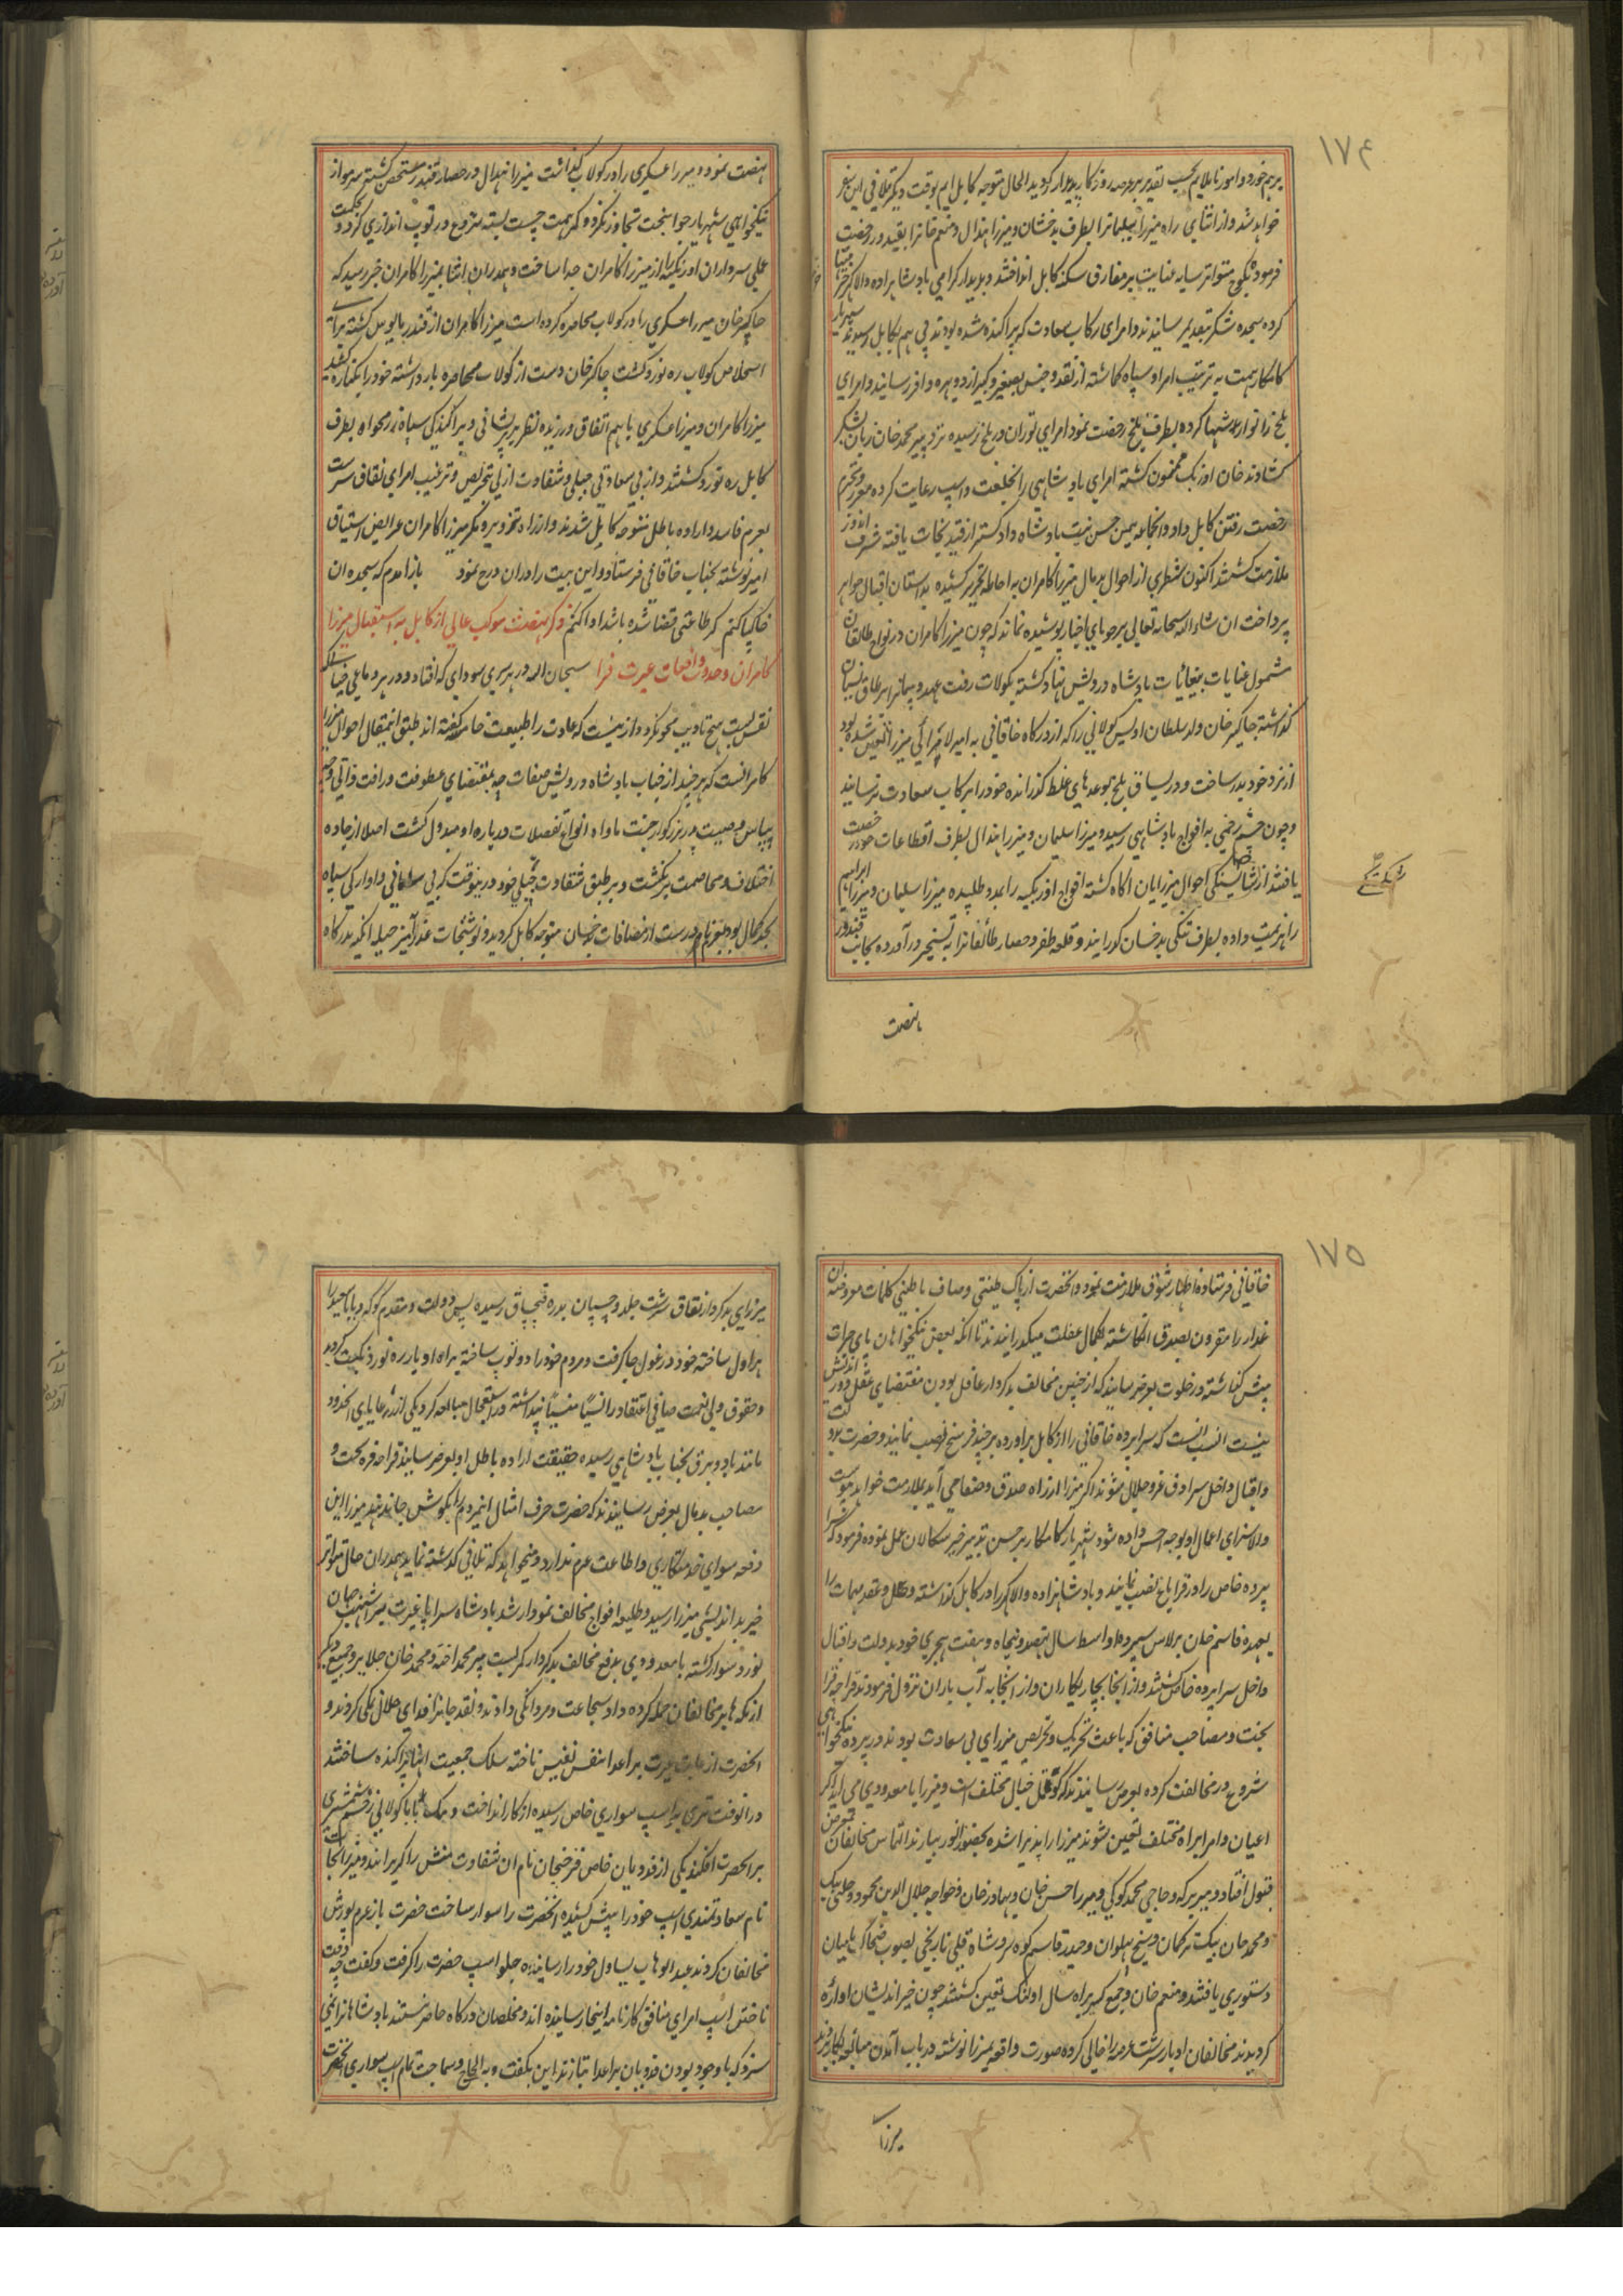 ۱۷۴
برهم خورد و امور ناملایم بحسب تقدیر بر عرصه روزگار پدیدار گردید الحال متوجه کابل ایم بوقت دیگر تلافی این سفر
خواهد شد و از اثنای راه میرزا سلیمانرا بطرف بدخشان و میرزا هندال و منعم خانرا بقندوز رخصت
فرموده بکوچ متواتر سایه عنایت بر مفارق سکنه کابل انداختند و بدیدار گرامی بادشاهزاده والا گهر
کرده سجده شکر بتقدیم رسانیدند و امرای رکاب سعادت که پراکنده شده بودند پی هم بکابل رسیدند
کامکار همت به ترتیب امرا و سپاه گماشته از نقد و جنس بصغیر و کبیر از دو بهره وافر رسانید و امرای
بلخ را نوازشها کرده بطرف بلخ رخصت نمود امرای توران در بلخ رسیده نزد پیر محمد خان زبان بشکر
گشادند خان اوزبک ممنون گشته امرای بادشاهی را بخلعت و اسپ رعایت کرده معزز و محترم
رخصت رفتن کابل داد و انجماعه بیمن حسن نیت بادشاه دادگستر از قید نجات یافته شرف اندوز
ملازمت گشتند اکنون شطری از احوال بد مال میرزا کامران به احاطه تحریر کشیده بداستان اقبال جواهر
پرداخت ان شاء الله سبحانه تعالی بر جویای اخبار پوشیده نماند که چون میرزا کامران در نواح طالقان
مشمول عنایات بیغایات بادشاه درویش نهاد گشته بکولاب رفت عهد و پیمانرا بر طاق نسیان
گذاشته چاکر خان ولد سلطان اویس کولابی را که از درگاه خاقانی به امیر الامرائی میرزا تعین شده بود
از نزد خود بدر ساخت و در یساق بلخ بوعدهای غلط گذرانده خود را برکاب سعادت نرسانید
و چون چشم زخمی به افواج بادشاهی رسید و میرزا سلیمان و میرزا هندال بطرف اقطاعات خود رخصت
یافتند از شایستگی احوال میرزایان آگاه گشته افواج اوزبکیه را بمدد طلبیده میرزا سلیمان و میرزا ابراهیم
را هزیمت داده بطرف تنگی بدخشان گورانید و قلعه ظفر و حصار طالقانرا به تسخیر درآورده بجانب قندوز
نهضت
نهضت نمود و میرزا عسکری را در کولاب گذاشت میرزا هندال در حصار قندز متحصن گشته سرمو از
نیکخواهی شهریار جوانبخت تجاوز نکرد و کمر همت چست بسته شروع در توپ اندازی کرد و بحکمت
عملی سرداران اوزبکیه را از میرزا کامران جدا ساخت و همدران اثنا بمیرزا کامران خبر رسید که
چاکر خان میرزا عسکری را در کولاب محاصره کرده است میرزا کامران از قندز مایوس گشته برای
استخلاص کولاب ره نورد گشت چاکر خان دست از کولاب محاصره باز داشته خود را بکناره کشید
میرزا کامران و میرزا عسکری باهم اتفاق ورزیده نظر بر پریشانی و پراکندگی سپاه بدخواه بطرف
کابل ره نورد گشتند و از بی سعادتی جبلی و شقاوت ازلی بتحریص و ترغیب امرای نفاق سرشت
بعزم فاسد و اراده باطل متوجه کابل شدند و از راه تزویر و مکر میرزا کامران عرایض اشتیاق
امیز نوشته بجناب خاقانی فرستاد و این بیت را دران درج نمود بازآمدم که سجده ان
خاک پا کنم گر طاعتی قضا شده باشد ادا کنم ذکر نهضت موکب عالی از کابل به استقبال میرزا
کامران و حدوث واقعات عبرت فزا سبحان الله در هر سری سودای که افتاد و در هر دماغی خیالیکه
نقش بست بهیچ تادیب محو نگردد از ینست که عادت را طبیعت خامسه گفته اند طبق این مقال احوال میرزا
کامرانست که هر چند از جناب بادشاه درویش صفات چه بمقتضای عطوفت و رافت ذاتی و چه
بپاس وصیت پدر بزرگوار جنت ماواه انواع تفضلات درباره او مبذول گشت اصلا از جاده
اختلاف و مخاصمت برنگشت و بر طبق شقاوت جبلی خود درینوقت که بی سامانی و اوارگی سپاه
بحد کمال بود متوجه کابل گردید و نوشتجات عذر آمیز حیله انگیز بدرگاه
۱۷۵
خاقانی فرستاده اظهار شوق ملازمت نمود و انحضرت از پاک طینتی و صاف باطنی کلمات مزورانه ان
غدار را مقرون بصدق انگاشته بکمال غفلت میگذرانیدند تا انکه بعضی نیکخواهان پای جرات
پیش گذاشته در خلوت بعرض رسانیدند که از چنین مخالف بدکردار غافل بودن مقتضای عقل دور اندیش
نیست انسب انست که سراپرده خاقانی را از کابل براورده بر چند فرسخ نصب نمایند و حضرت بدولت
و اقبال داخل سرادق عز و جلال شوند اگر میرزا از راه صدق و صفا می آید بملازمت خواهد پیوست
و الا سزای اعمال او بوجه احسن داده شود شهریار کامکار بر حسن تدبیر خیر سگالان عمل نموده فرمود که سرا
پرده خاص را در قراباغ نصب نمایند و بادشاهزاده والا گهر را در کابل گذاشته و حل و عقد مهمات را
بعهده قاسم خان برلاس سپرده اواسط سال نهصد و پنجاه و هفت هجری خود بدولت و اقبال
داخل سراپرده خاص گشتند و از انجا بچاریکاران و از انجا به آب باران نزول فرمودند قراچه قرا
بخت و مصاحب منافق که باعث تحریک و تحریص میرزای بی سعادت بودند در پرده نیکخواهی
شروع در مخالفت کرده بعرض رسانیدند که خیال مختلف است و میرزا با معدودی می آید اگر
اعیان و امرا براه مختلف تعین شوند میرزا را پذیرا شده بحضور انور بیارند التماس مخالفان بمعرض
قبول افتاد و میر برکه و حاجی محمد کوکی و میرزا حسن خان و بهادر خان و خواجه جلال الدین محمود و چلپی بیک
و محمد خان بیک ترکمان و شیخ بهلول و حیدر قاسم کوه بر و شاه قلی نارنجی بصوب ضحاک بامیان
دستوری یافتند و منعم خان و جمع کثیر براه سال اولنگ تعین گشتند چون خیر اندیشان اواره
گردیدند مخالفان ادبار سرشت عرصه را خالی کرده صورت واقعه بمیرزا نوشته در باب آمدن مبالغه بکار بردند
میرزا
میرزای بدکردار نفاق سرشت جلد و چسپان بدره قبچاق رسیده یس دولت و مقدم کوکه و بابا سعید را
هراول ساخته خود در غول جا گرفت و مردم خود را دو توپ ساخته براه ادبار ره نورد نکبت گردید
و حقوق ولی نعمت صافی اعتقاد را نسیا منسیا پنداشته در استعجال مبالغه کرد یکی از رعایای انحدود
مانند باد و برق بجناب بادشاهی رسیده حقیقت اراده باطل او بعرض رسانید قراچه قره بخت و
مصاحب بد مال بعرض رسانیدند که حضرت حرف امثال اینمردم را بگوش جا ندهند میرزا این
دفعه سوای خدمتگاری و اطاعت عزم ندارد و میخواهد که تلافی گذشته نماید همدران حال متواتر
خبر بد اندیشی میرزا رسید و طلیعه افواج مخالف نمودار شد بادشاه سراپا غیرت بر اشهب جهان
نورد سوار گشته با معدودی بدفع مخالف بدکردار کمر بست پیر محمد اخته و محمد خان جلایر و جمعی دیگر
از یکه ها بر مخالفان حمله کرده داد شجاعت و مردانگی دادند و نقد جانرا فدای حلال نمکی کردند و
انحضرت از غایت غیرت بر اعدا بنفس نفیس تاخته سلک جمعیت انها پراکنده ساختند
درانوقت تیری به اسپ سواری خاص رسیده از کار انداخت و بیک بابا کولابی زخم شمشیری
بر انحضرت افکند یکی از فدویان خاص فرخجان نام ان شقاوت منش را گریزانید و میرزا نجات
نام سعادتمندی اسپ خود را پیش کشیده انحضرت را سوار ساخت حضرت باز عزم یورش
مخالفان کردند عبدالوهاب یساول خود را رسانیده جلو اسپ حضرت را گرفت و گفت چه وقت
تاختن اسپ امرای منافق کار نامه اینجا رسانیده اند و مخلصان درگاه حاضر نیستند بادشاهانرا نمی
سزد که با وجود بودن فدویان بر اعدا بتازند این بگفت و به الحاح و سماجت تمام اسپ سواری انحضرت